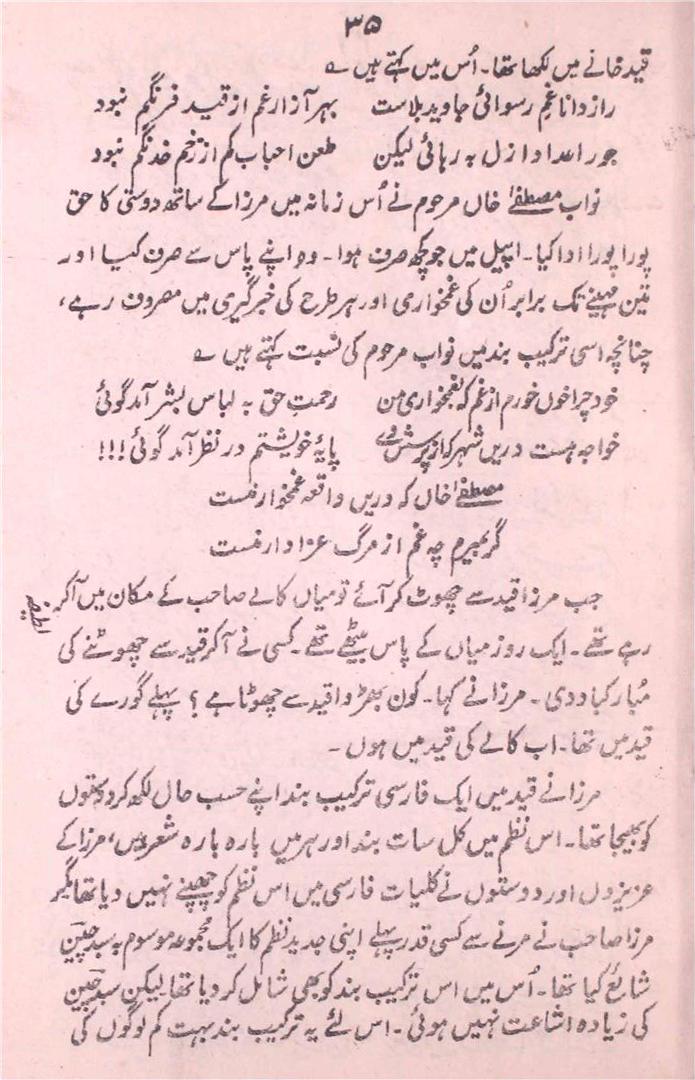 ۳۵
قید خانے میں لکھا تھا۔ اُس میں کہتے ہیں ؎
راز دانا غمِ رسوائیِ جاوید بلاست     بہر آزار غم از قیدِ فرنگم نبود
جورِ اعدا و ازل بہ رہائی لیکن     طعنِ احباب کم از زخمِ خدنگم نبود
نواب مصطفےٰ خاں مرحوم نے اُس زمانہ میں مرزا کے ساتھ دوستی کا حق
پورا پورا ادا کیا۔ اپیل میں جو کچھ صرف ہوا۔ وہ اپنے پاس سے صرف کیا اور
تین مہینے تک برابر اُن کی غمخواری اور ہر طرح کی خبرگیری میں مصروف رہے،
چنانچہ اسی ترکیب بند میں نواب مرحوم کی نسبت کہتے ہیں ؎
خود چرا خوں خورم از غم کہ بغمخواریِ من     رحمتِ حق بہ لباسِ بشر آمد گوئی
خواجہ ہست دریں شہر کہ از پرسشِ وے     پایۂ خویشتنم در نظر آمد گوئی!!!
مصطفےٰ خاں کہ دریں واقعہ غمخوارِ منست
گر بمیرم چہ غم از مرگ عزادارِ منست
جب مرزا قید سے چھوٹ کر آئے تو میاں کالے صاحب کے مکان میں آکر
لطیفہ
رہے تھے۔ ایک روز میاں کے پاس بیٹھے تھے۔ کسی نے آکر قید سے چھوٹنے کی
مُبارکباد دی۔ مرزا نے کہا۔ کون بھڑوا قید سے چھوٹا ہے؟ پہلے گورے کی
قید میں تھا۔ اب کالے کی قید میں ہوں۔
مرزا نے قید میں ایک فارسی ترکیب بند اپنے حسب حال لکھ کر دوستوں
کو بھیجا تھا۔ اس نظم میں کل سات بند اور ہر میں بارہ بارہ شعر ہیں، مرزا کے
عزیزوں اور دوستوں نے کلیات فارسی میں اس نظم کو چھپنے نہیں دیا تھا مگر
مرزا صاحب نے مرنے سے کسی قدر پہلے اپنی جدید نظم کا ایک مجموعہ موسوم بہ سبد چین
شایع کیا تھا۔ اُس میں اس ترکیب بند کو بھی شامل کر دیا تھا لیکن سبد چین
کی زیادہ اشاعت نہیں ہوئی۔ اس لئے یہ ترکیب بند بہت کم لوگوں کی